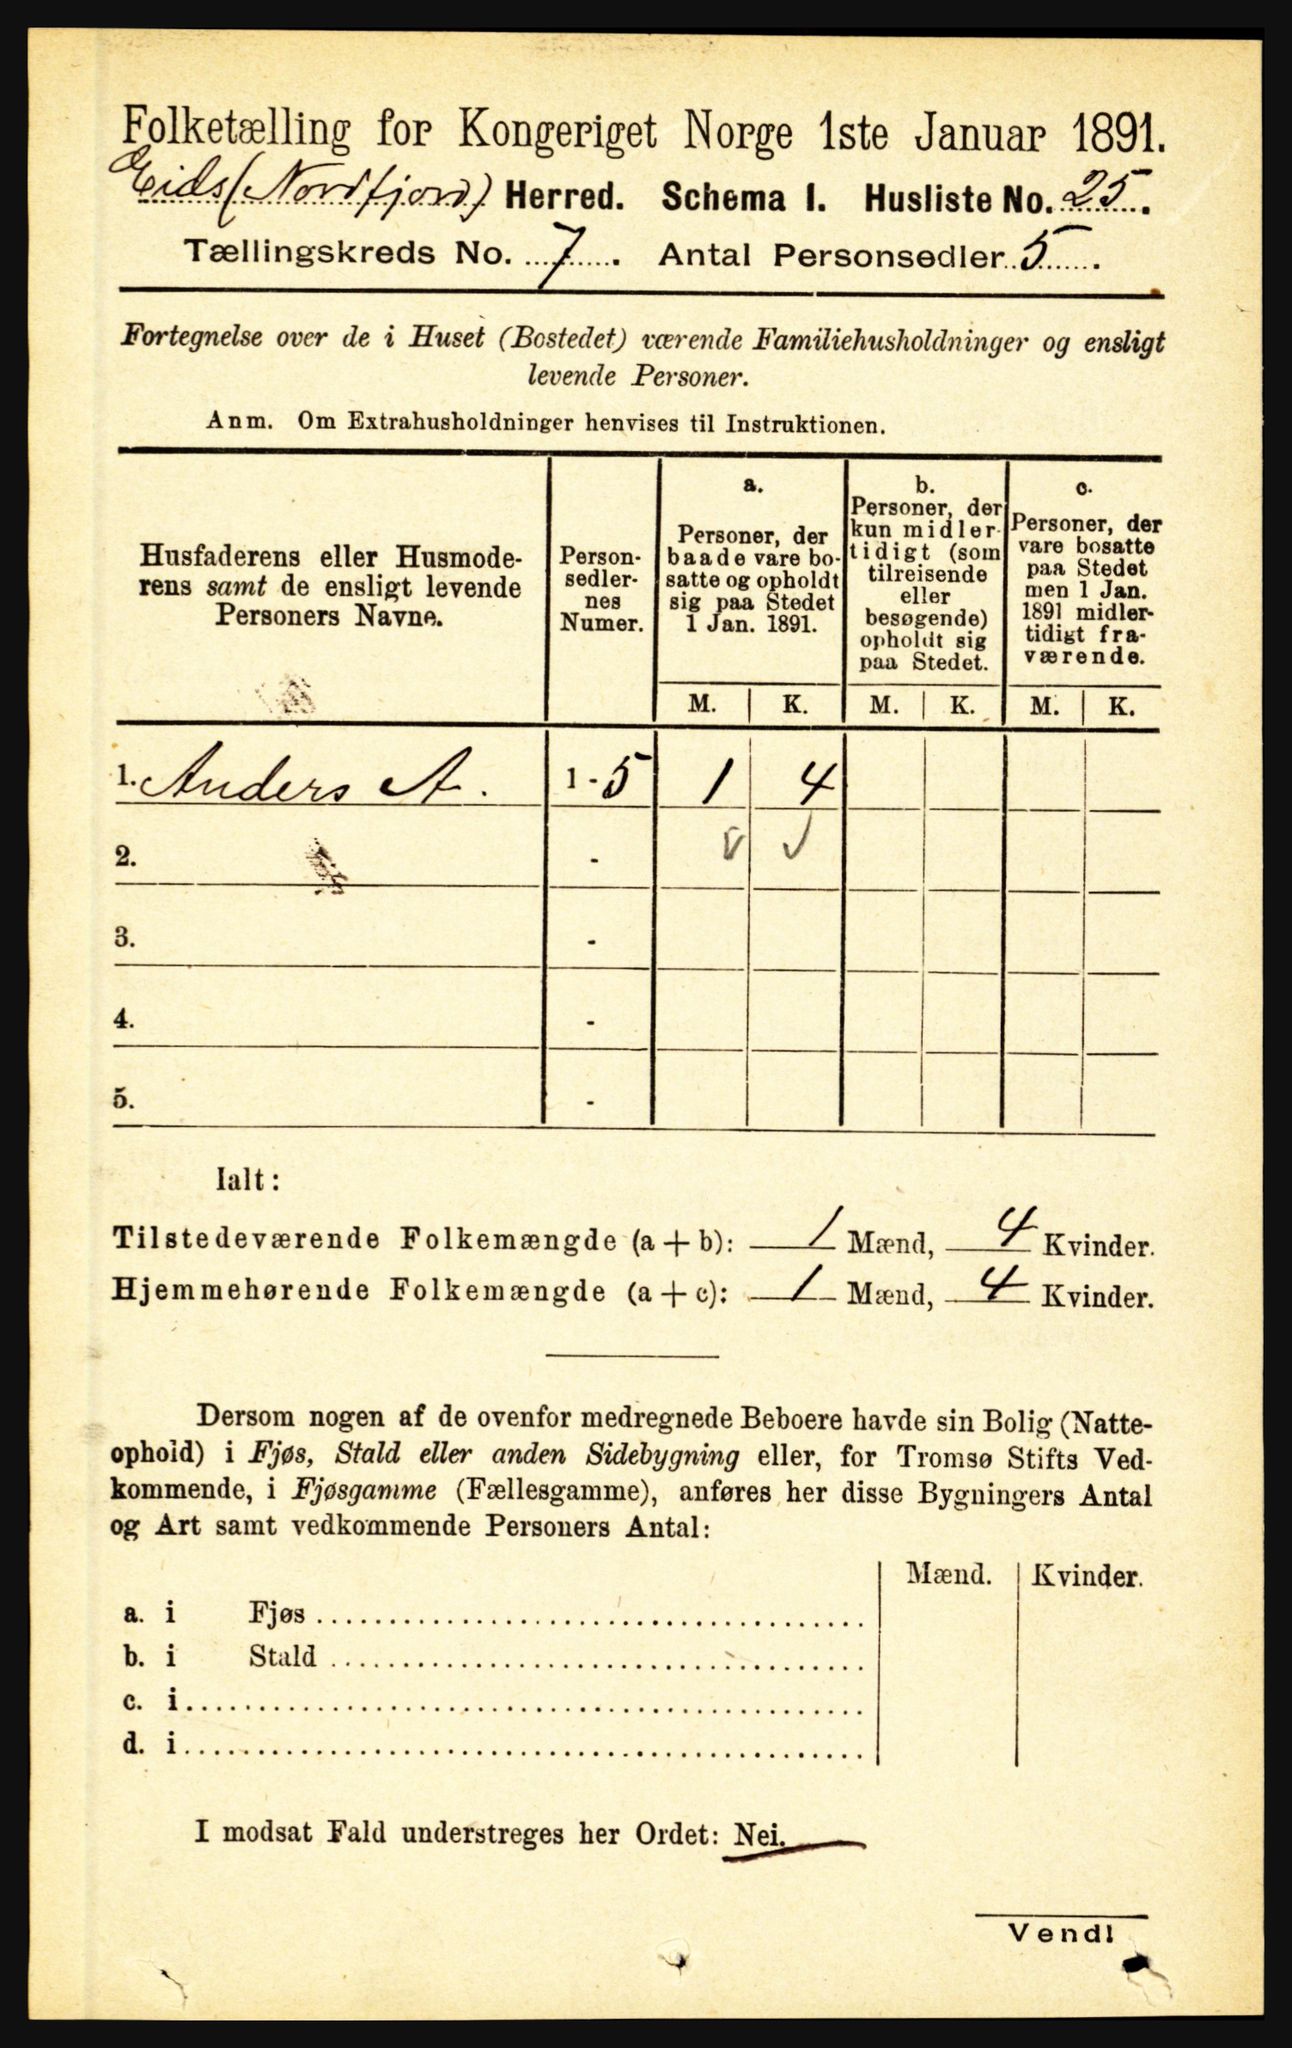 Folketælling for Kongeriget Norge 1ste Januar 1891.
Eids (Nordfjord) Herred. Schema I. Husliste No. 25.
Tællingskreds No. 7. Antal Personsedler 5.
Fortegnelse over de i Huset (Bostedet) værende Familiehusholdninger og ensligt
levende Personer.
Anm. Om Extrahusholdninger henvises til Instruktionen.
Husfaderens eller Husmode-
rens samt de ensligt levende
Personers Navne.
Person-
sedler-
nes
Numer.
a.
Personer, der
baade vare bo-
satte og opholdt
sig paa Stedet
1 Jan. 1891.
b.
Personer, der
kun midler-
tidigt (som
tilreisende
eller
besøgende)
opholdt sig
paa Stedet.
c.
Personer, der
vare bosatte
paa Stedet
men 1 Jan.
1891 midler-
tidigt fra-
værende.
M. K. M. K. M. K.
1. Anders A. 1 - 5 1 4
2. -
3. -
4. -
5. -
Ialt:
Tilstedeværende Folkemængde (a + b): 1 Mænd, 4 Kvinder.
Hjemmehørende Folkemængde (a + c): 1 Mænd, 4 Kvinder.
Dersom nogen af de ovenfor medregnede Beboere havde sin Bolig (Natte-
ophold) i Fjøs, Stald eller anden Sidebygning eller, for Tromsø Stifts Ved-
kommende, i Fjøsgamme (Fællesgamme), anføres her disse Bygningers Antal
og Art samt vedkommende Personers Antal:
Mænd. Kvinder.
a. i Fjøs
b. i Stald
c. i
d. i
I modsat Fald understreges her Ordet: Nei.
Vend!